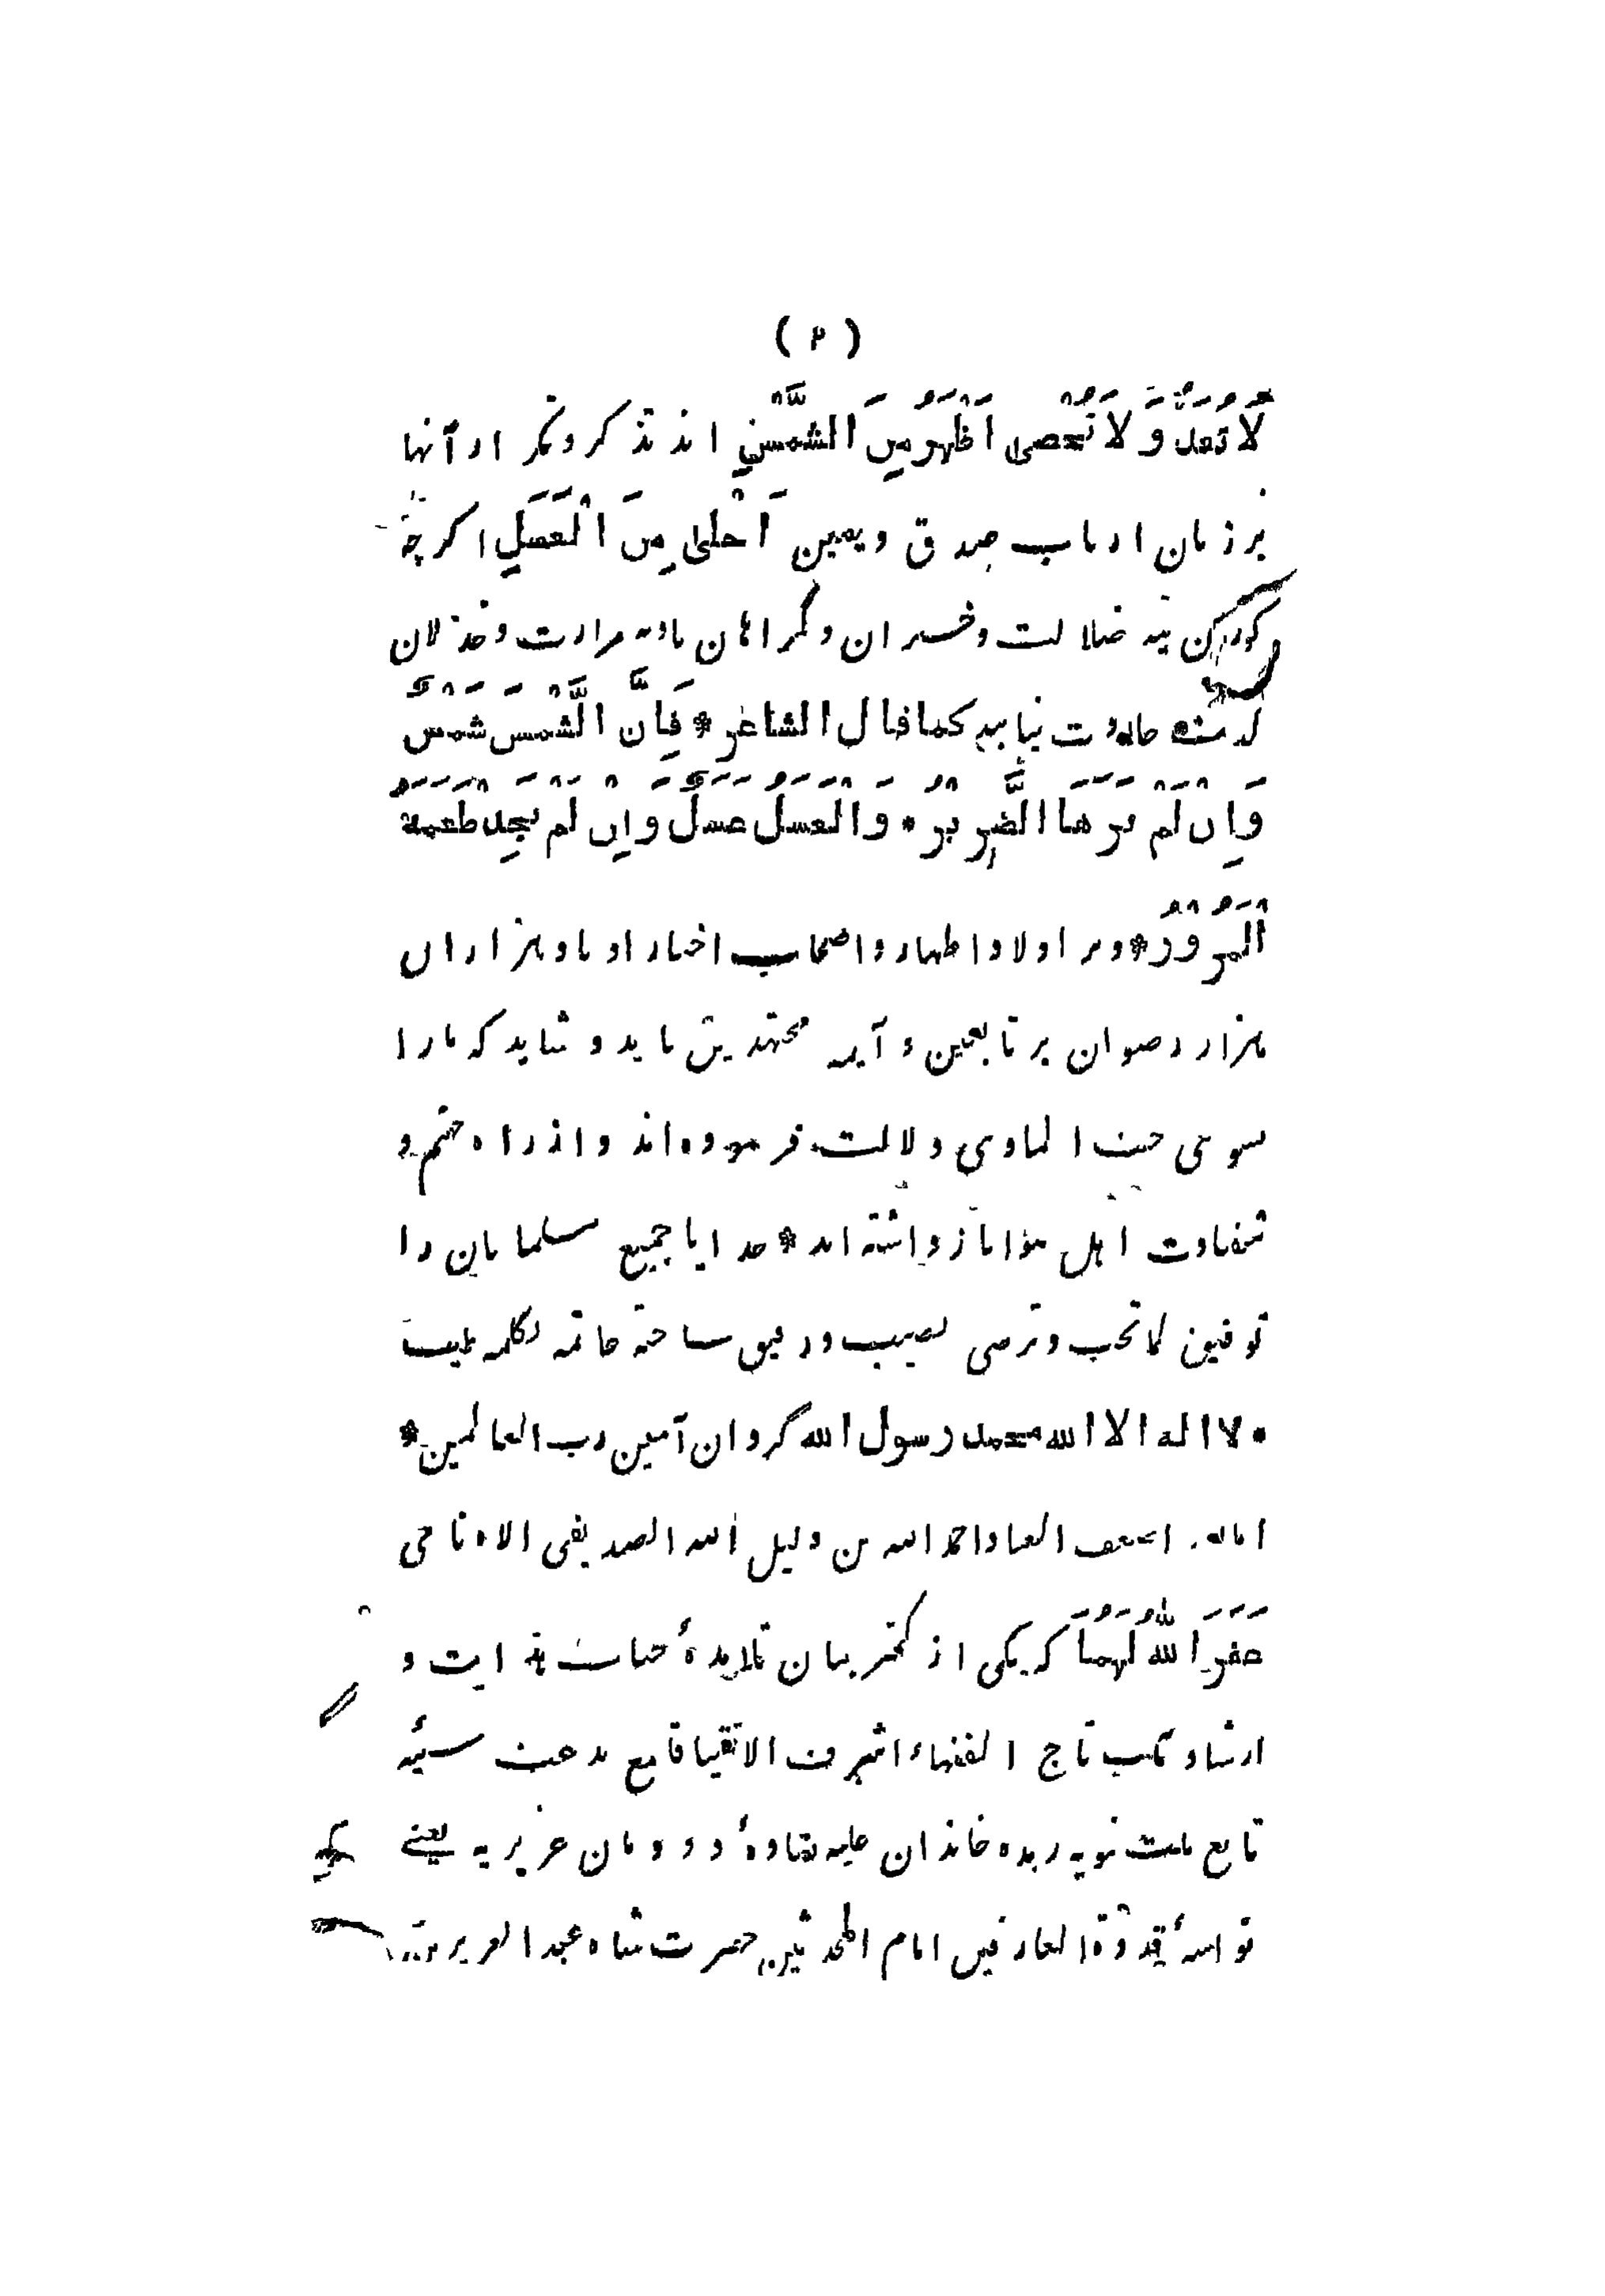 ( ۲ )
لَا تُعَدُّ وَلَا تُحْصٰى اَظْهَرُ مِنَ الشَّمْسِ اند تذکر و تکرار آنها
بر زبان ارباب صدق و یقین اَحْلٰى مِنَ الْعَسَلِ اگرچه
ضلالت و خسران و گمراهان بادیه مرارت و خذلان
لذت حلاوت نیابند کما قال الشاعر * فَاِنَّ الشَّمْسَ شَمْسٌ
وَاِنْ لَمْ يَرَهَا الضَّرِيْرُ • وَالْعَسَلُ عَسَلٌ وَاِنْ لَمْ يَجِدْ طَعْمَهُ
الْمَمْرُوْرُ * و بر اولاد اطهار و اصحاب اخیار او باد هزاران
هزار رضوان بر تابعین و آیمه مجتهدین باید و شاید که مارا
سوی جنت الماوی دلالت فرموده اند و از راه جهنم و
شقاوت اهل هوا باز داشته اند * خدایا جمیع مسلمانان را
توفیق کما تحب و ترضی نصیب و رفیق ساخته خاتمه بکلمه طیبت
• لا اله الا الله محمد رسول الله گردان آمین رب العالمین *
اما بعد اضعف العباد احمد الله بن دلیل الله الصدیقی الانامی
غَفَرَ اللّٰهُ لَهُمَا که یکی از کمترینان تلامذهٔ جناب هدایت و
ارشاد مکسب تاج الفقهاء اشرف الاتقیا قامع بدعت سیئه
تابع ملت نبویه زبده خاندان علیه نقاوهٔ دودمان عزیزیه یعنے
نواسهٔ قدوة العارفین امام المحدثین حضرت شاه عبد العزیز